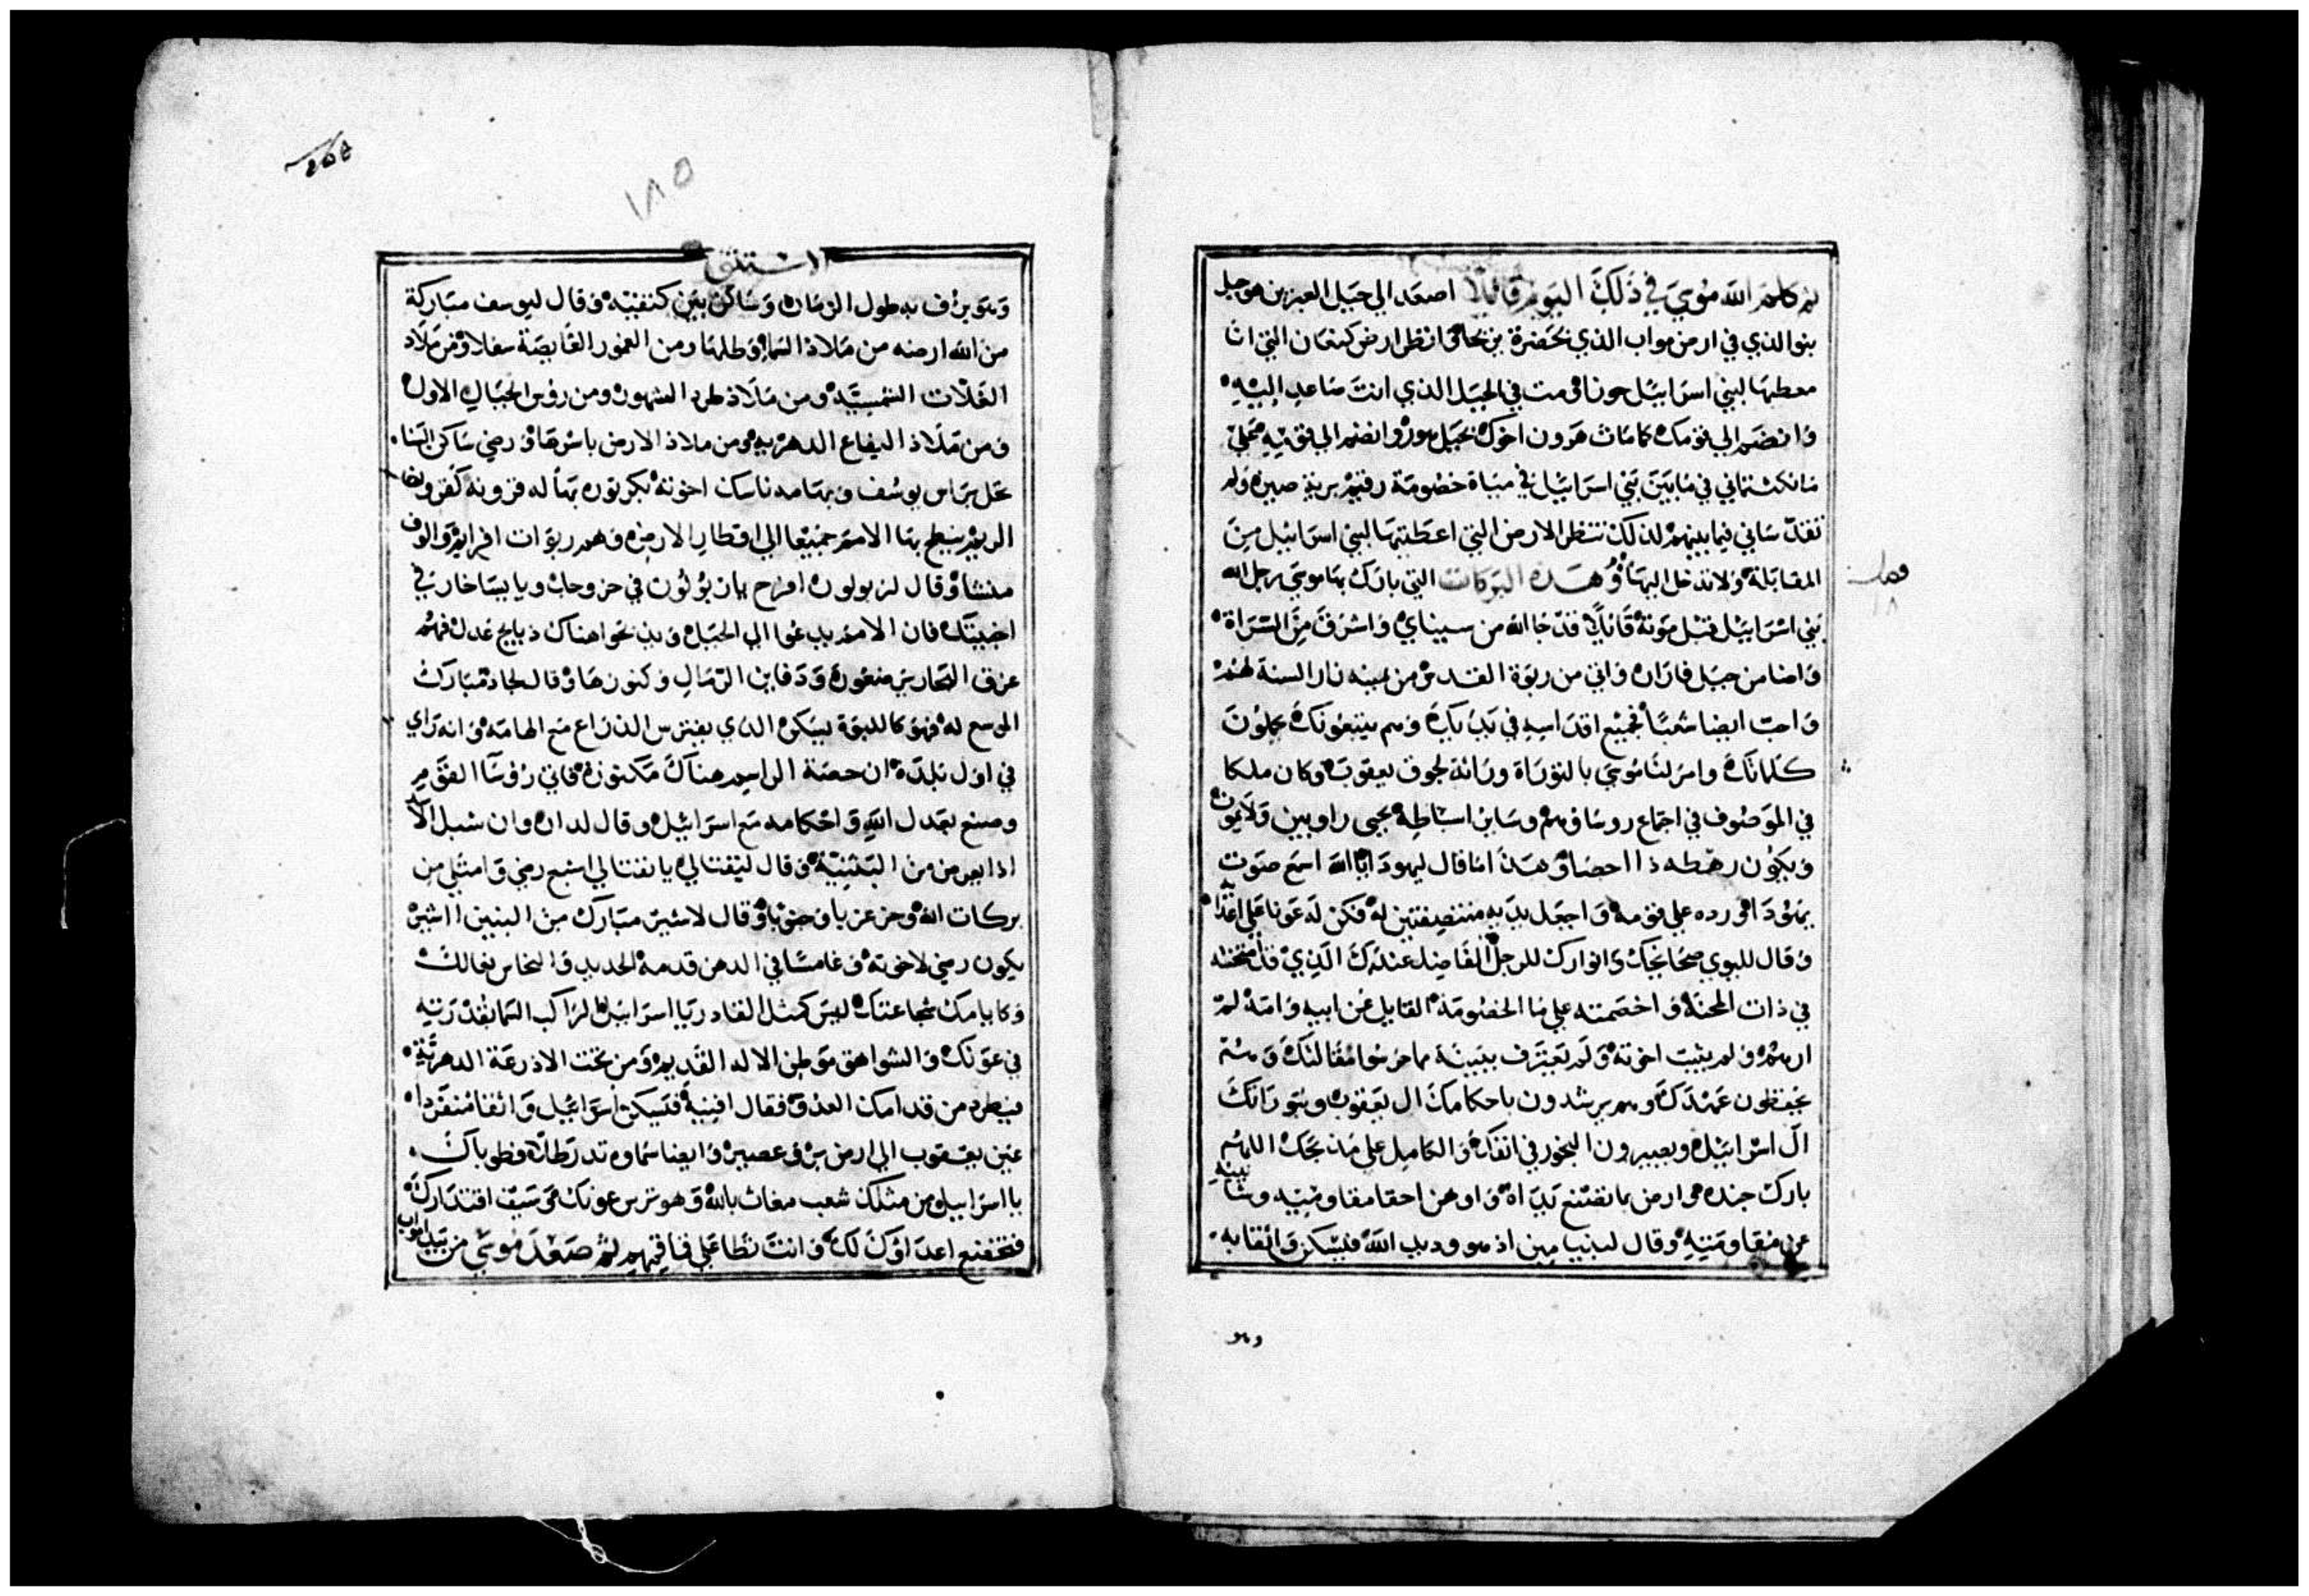 ثم كلم الله موسي في ذلك اليوم قائلا اصعد الي جبل العبرين هو جبل
بنو الذي في ارض مواب الذي بحضرة يريحا وانظر ارض كنعان التي انا
معطيها لبني اسراييل حوزا ومت في الجبل الذي انت صاعد اليه
وانضم الي قومك كما مات هرون اخوك بجبل هور وانضم الي قوميه
في ما بين بني اسراييل في مياة خصومة رقيم برية صين ولم
تقدساني فيما بينهم لذلك تنظر الارض التي اعطيتها لبني اسراييل من
المقابلة ولا تدخل اليها وهذه البركات التي بارك بها موسي رجل الله
بني اسراييل قبل موته قائلا قد جا الله من سيناي واشرق من السراة
واضا من جبل فاران واتي من ربوة القدس من يمينه نار السنة لهم
واحب ايضا شعبا جميع اقداسه في يديك وهم يتبعونك يحملون
كلماتك وامر لنا موسي بالتوراة وراثة لجوق يعقوب وكان ملكا
في الموصوف في اجتماع روساوهم وساير اسباطه يحيى راوبين ولا يموت
ويكون رهطه ذا احصا وهذا ما قال ليهودا يا الله اسمع صوت
يهودا ورده علي قومه واجعل يديه منتصفتين له فكن له عونا علي اعداه
وقال لليوي صحانجك وانوارك للرجل الفاضل عندك الذي قد امتحنته
في ذات المحنة واخصمته علي ما الخصومة القايل عن ابيه وامه لم
ارهم ولم يثبت اخوته ولم يعترف ببنينه ما حرسوا مقالتك وهم
يحفظون عهدك وهم يرشدون باحكامك ال يعقوب وبتوراتك
ال اسراييل ويصيرون البخور في انفك والكامل علي مذبحك اللهم
بارك جنده وارض بما تصنع يداه واوهن احقا مقاوميه وشانييه
عن مقاومتيه وقال لبنيامين اذ هو وديد الله فليسكن واثقا به
وهو
فصل
١٨
١٨٥
الاستثنى
وهو يرف به طول الزمان وساكن بين كنفيه وقال ليوسف مباركة
من الله ارضه من ملاذ السما وطلها ومن الغمور الفايضة سفلا ومن ملاذ
الغلات الشمسية ومن ملاذ طرد الشهور ومن روس الجبال الاول
ومن ملاذ اليفاع الدهرية ومن ملاذ الارض باسرها ورضي ساكن السنا
تحل براس يوسف وبهامة ناسك اخوته بكر ثوره بها له قرونه كقرون
الريم ينطح بها الامم جميعا الي اقطار الارض وهم ربوات افرايم والوف
منشا وقال لزبولون افرح يازبولون في خروجك ويا يساخار في
اخبيتك فان الامم يدعوا الي الجبل ويذبحوا هناك ذبايح عدل فهم
عزق البحار يرضعون ودفاين الرمال وكنوزها وقال لجاد مبارك
الموسع له فهو كاللبوة يسكن الذي يفترس الذراع مع الهامة وانه راي
في اول بلدة ان حصة الراسم هناك مكنوزة واتي روسا القوم
وصنع بعدل الله واحكامه مع اسراييل وقال لدان دان شبل الاسد
اذا يعرض من البثنية وقال لنفتالي يا نفتالي اشبع رضي وامتلي من
بركات الله وحز غربا وجنوبا وقال لاشير مبارك من البنين اشير
يكون رضي لاخوته وغامسا في الدهن قدمه الحديد والنحاس نعالك
وكايامك شجاعتك ليس كمثل القادر يا اسراييل الراكب السما بقدرته
في عونك والشواهق موطن الاله القديم ومن تحت الاذرعة الدهرية
فيطرد من قدامك العدو فقال افنيه فيسكن اسراييل واثقا منفردا
عين يعقوب الي ارض بر وعصير وايضا سماوه تدر طلا فطوباك
يا اسراييل من مثلك شعب مغاث بالله وهو ترس عونك وسيف اقتدارك
فتخضع اعداوك لك وانت تطا علي فاقيهم ثم صعد موسي من بيد مواب